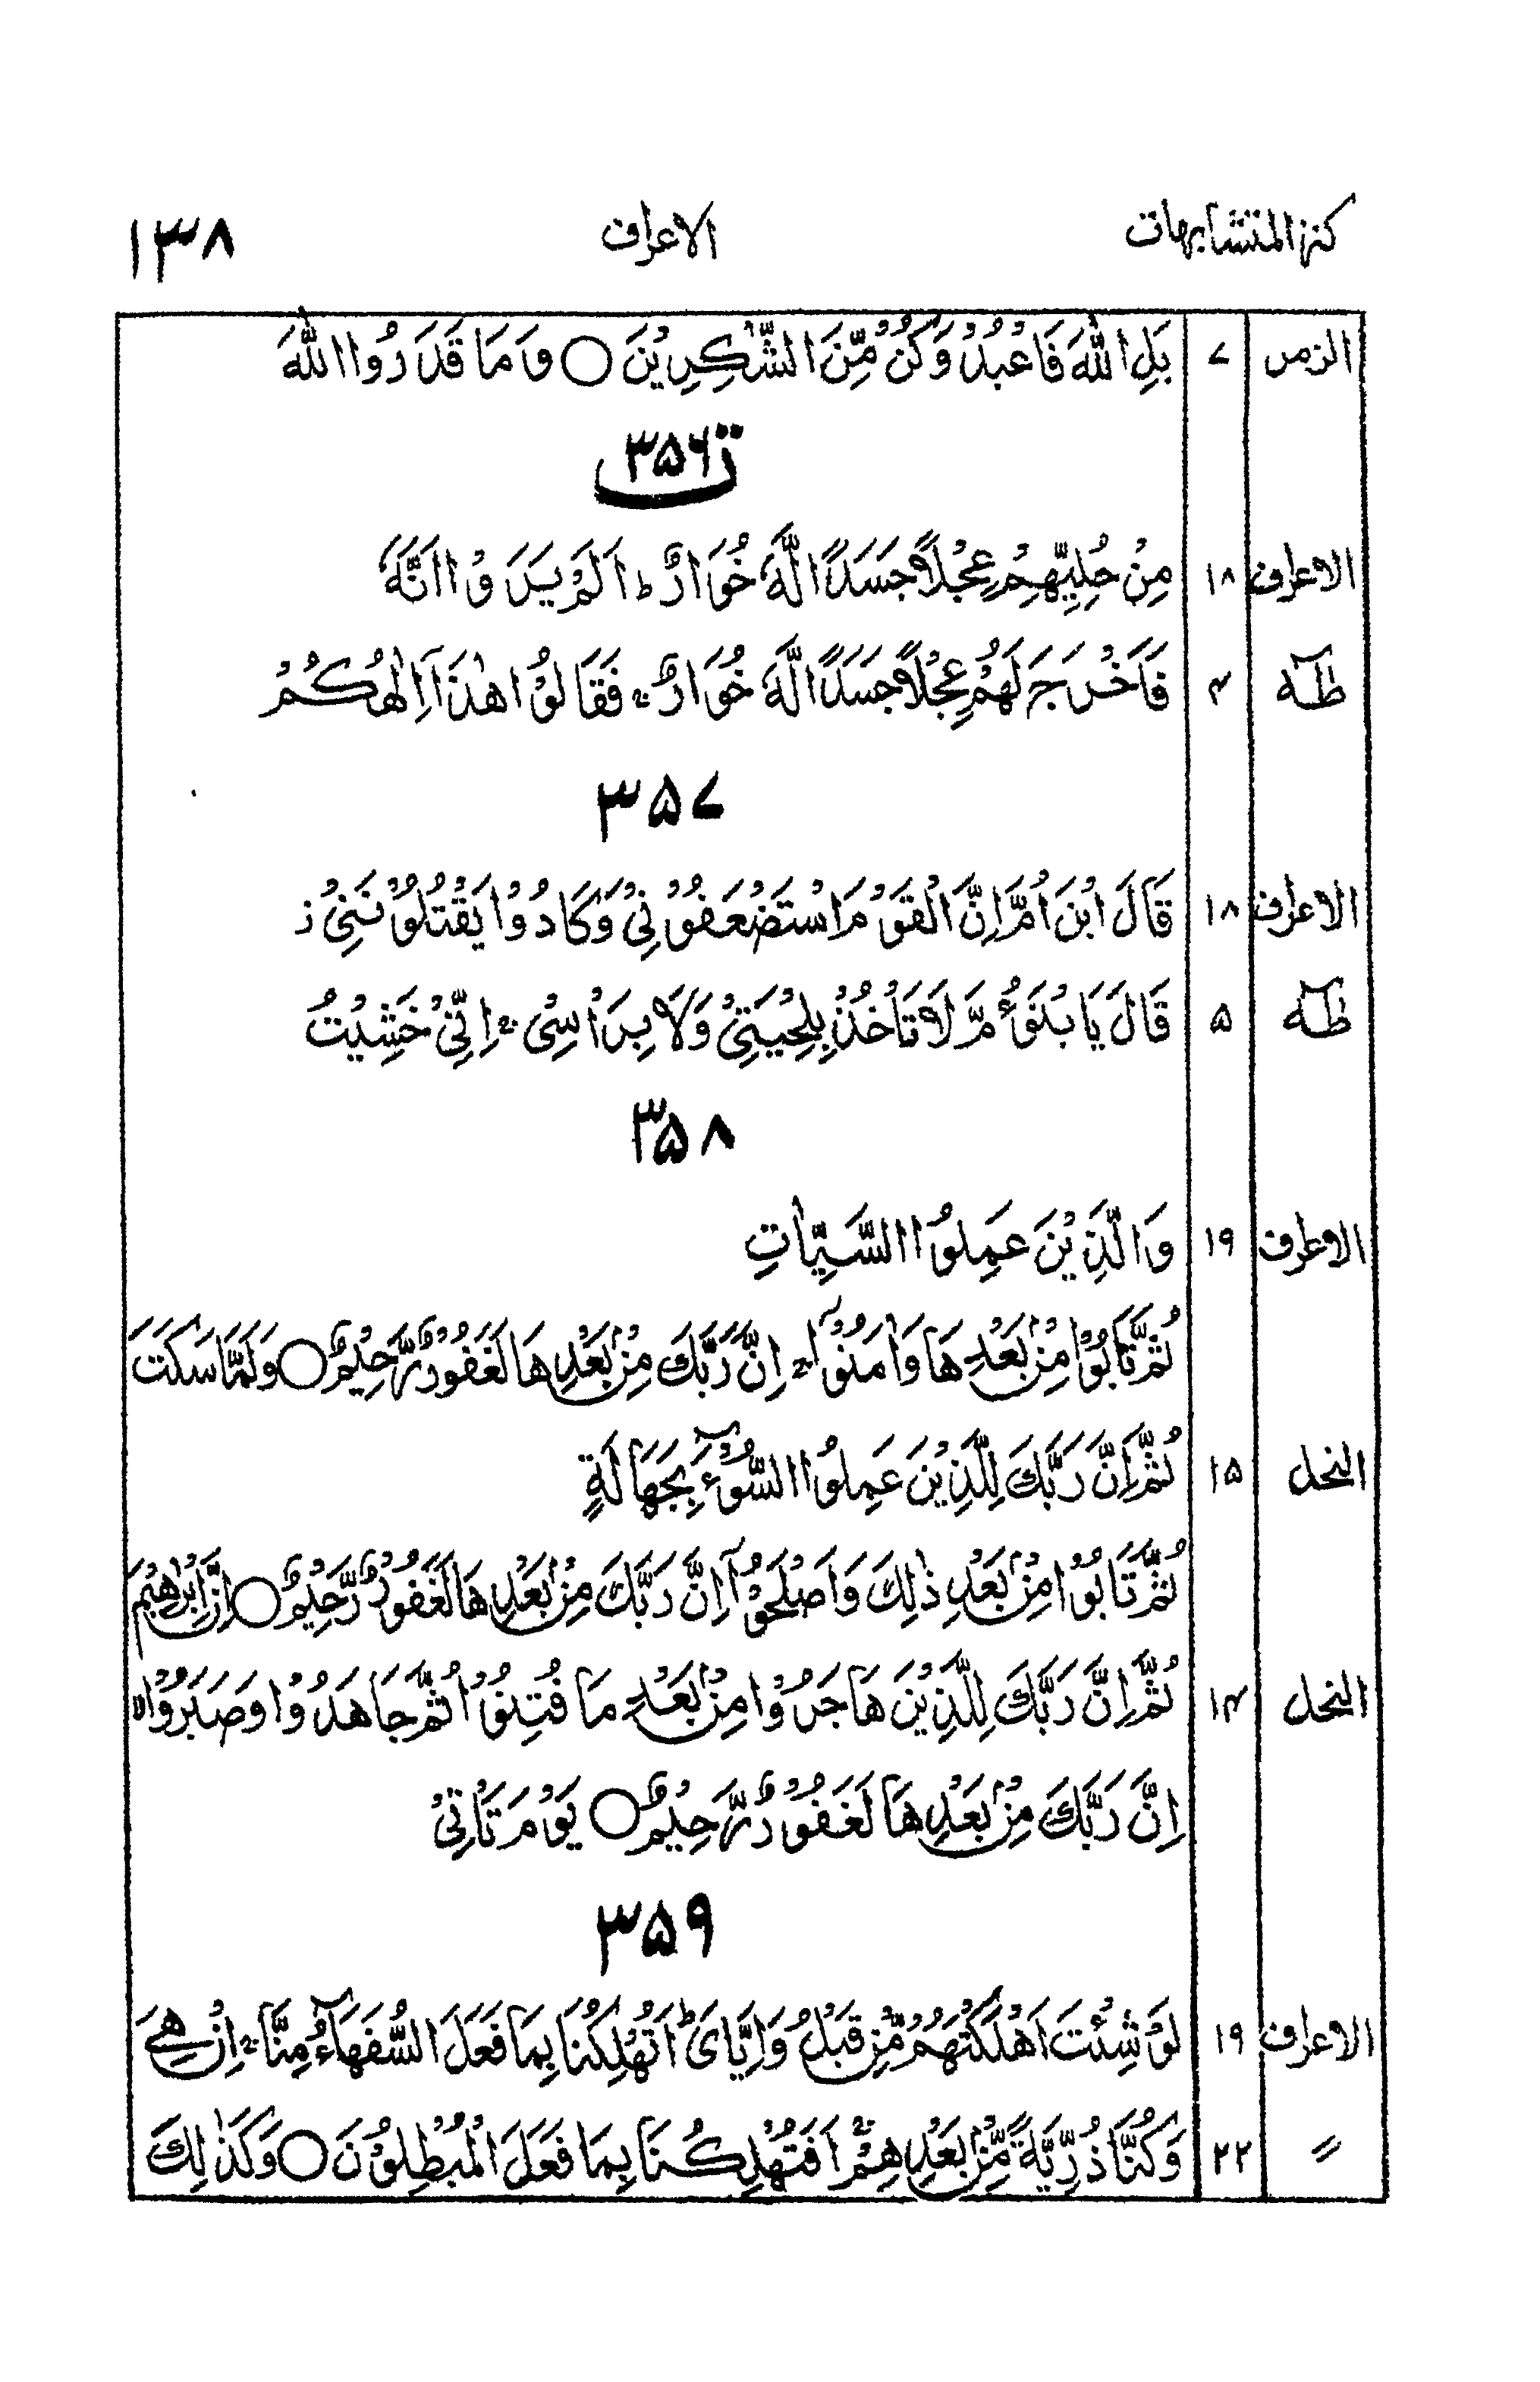 كنز المتشابهات الاعراف ۱۳۸
الزمر ۷ بَلِ اللّٰهَ فَاعْبُدْ وَكُنْ مِّنَ الشّٰكِرِيْنَ ○ وَمَا قَدَرُوا اللّٰهَ
ت ۳۵۶
الاعراف ۱۸ مِنْ حُلِيِّهِمْ عِجْلًا جَسَدًا لَّهٗ خُوَارٌ ؕ اَلَمْ يَرَوْا اَنَّهٗ
طٰهٰ ۴ فَاَخْرَجَ لَهُمْ عِجْلًا جَسَدًا لَّهٗ خُوَارٌ فَقَالُوْا هٰذَا اِلٰهُكُمْ
۳۵۷
الاعراف ۱۸ قَالَ ابْنَ اُمَّ اِنَّ الْقَوْمَ اسْتَضْعَفُوْنِيْ وَكَادُوْا يَقْتُلُوْنَنِيْ ز
طٰهٰ ۵ قَالَ يَا بْنَؤُمَّ لَا تَاْخُذْ بِلِحْيَتِيْ وَلَا بِرَاْسِيْ ۚ اِنِّيْ خَشِيْتُ
۳۵۸
الاعراف ۱۹ وَالَّذِيْنَ عَمِلُوا السَّيِّاٰتِ
ثُمَّ تَابُوْا مِنْۢ بَعْدِهَا وَاٰمَنُوْۤا ۚ اِنَّ رَبَّكَ مِنْۢ بَعْدِهَا لَغَفُوْرٌ رَّحِيْمٌ ○ وَلَمَّا سَكَتَ
النحل ۱۵ ثُمَّ اِنَّ رَبَّكَ لِلَّذِيْنَ عَمِلُوا السُّوْٓءَ بِجَهَالَةٍ
ثُمَّ تَابُوْا مِنْۢ بَعْدِ ذٰلِكَ وَاَصْلَحُوْۤا اِنَّ رَبَّكَ مِنْۢ بَعْدِهَا لَغَفُوْرٌ رَّحِيْمٌ ○ اِنَّ اِبْرٰهِيْمَ
النحل ۱۴ ثُمَّ اِنَّ رَبَّكَ لِلَّذِيْنَ هَاجَرُوْا مِنْۢ بَعْدِ مَا فُتِنُوْا ثُمَّ جَاهَدُوْا وَصَبَرُوْا ۙ
اِنَّ رَبَّكَ مِنْۢ بَعْدِهَا لَغَفُوْرٌ رَّحِيْمٌ ○ يَوْمَ تَاْتِيْ
۳۵۹
الاعراف ۱۹ لَوْ شِئْتَ اَهْلَكْتَهُمْ مِّنْ قَبْلُ وَاِيَّايَ ؕ اَتُهْلِكُنَا بِمَا فَعَلَ السُّفَهَآءُ مِنَّا ۚ اِنْ هِيَ
〃 ۲۲ وَكُنَّا ذُرِّيَّةً مِّنْۢ بَعْدِهِمْ ۚ اَفَتُهْلِكُنَا بِمَا فَعَلَ الْمُبْطِلُوْنَ ○ وَكَذٰلِكَ